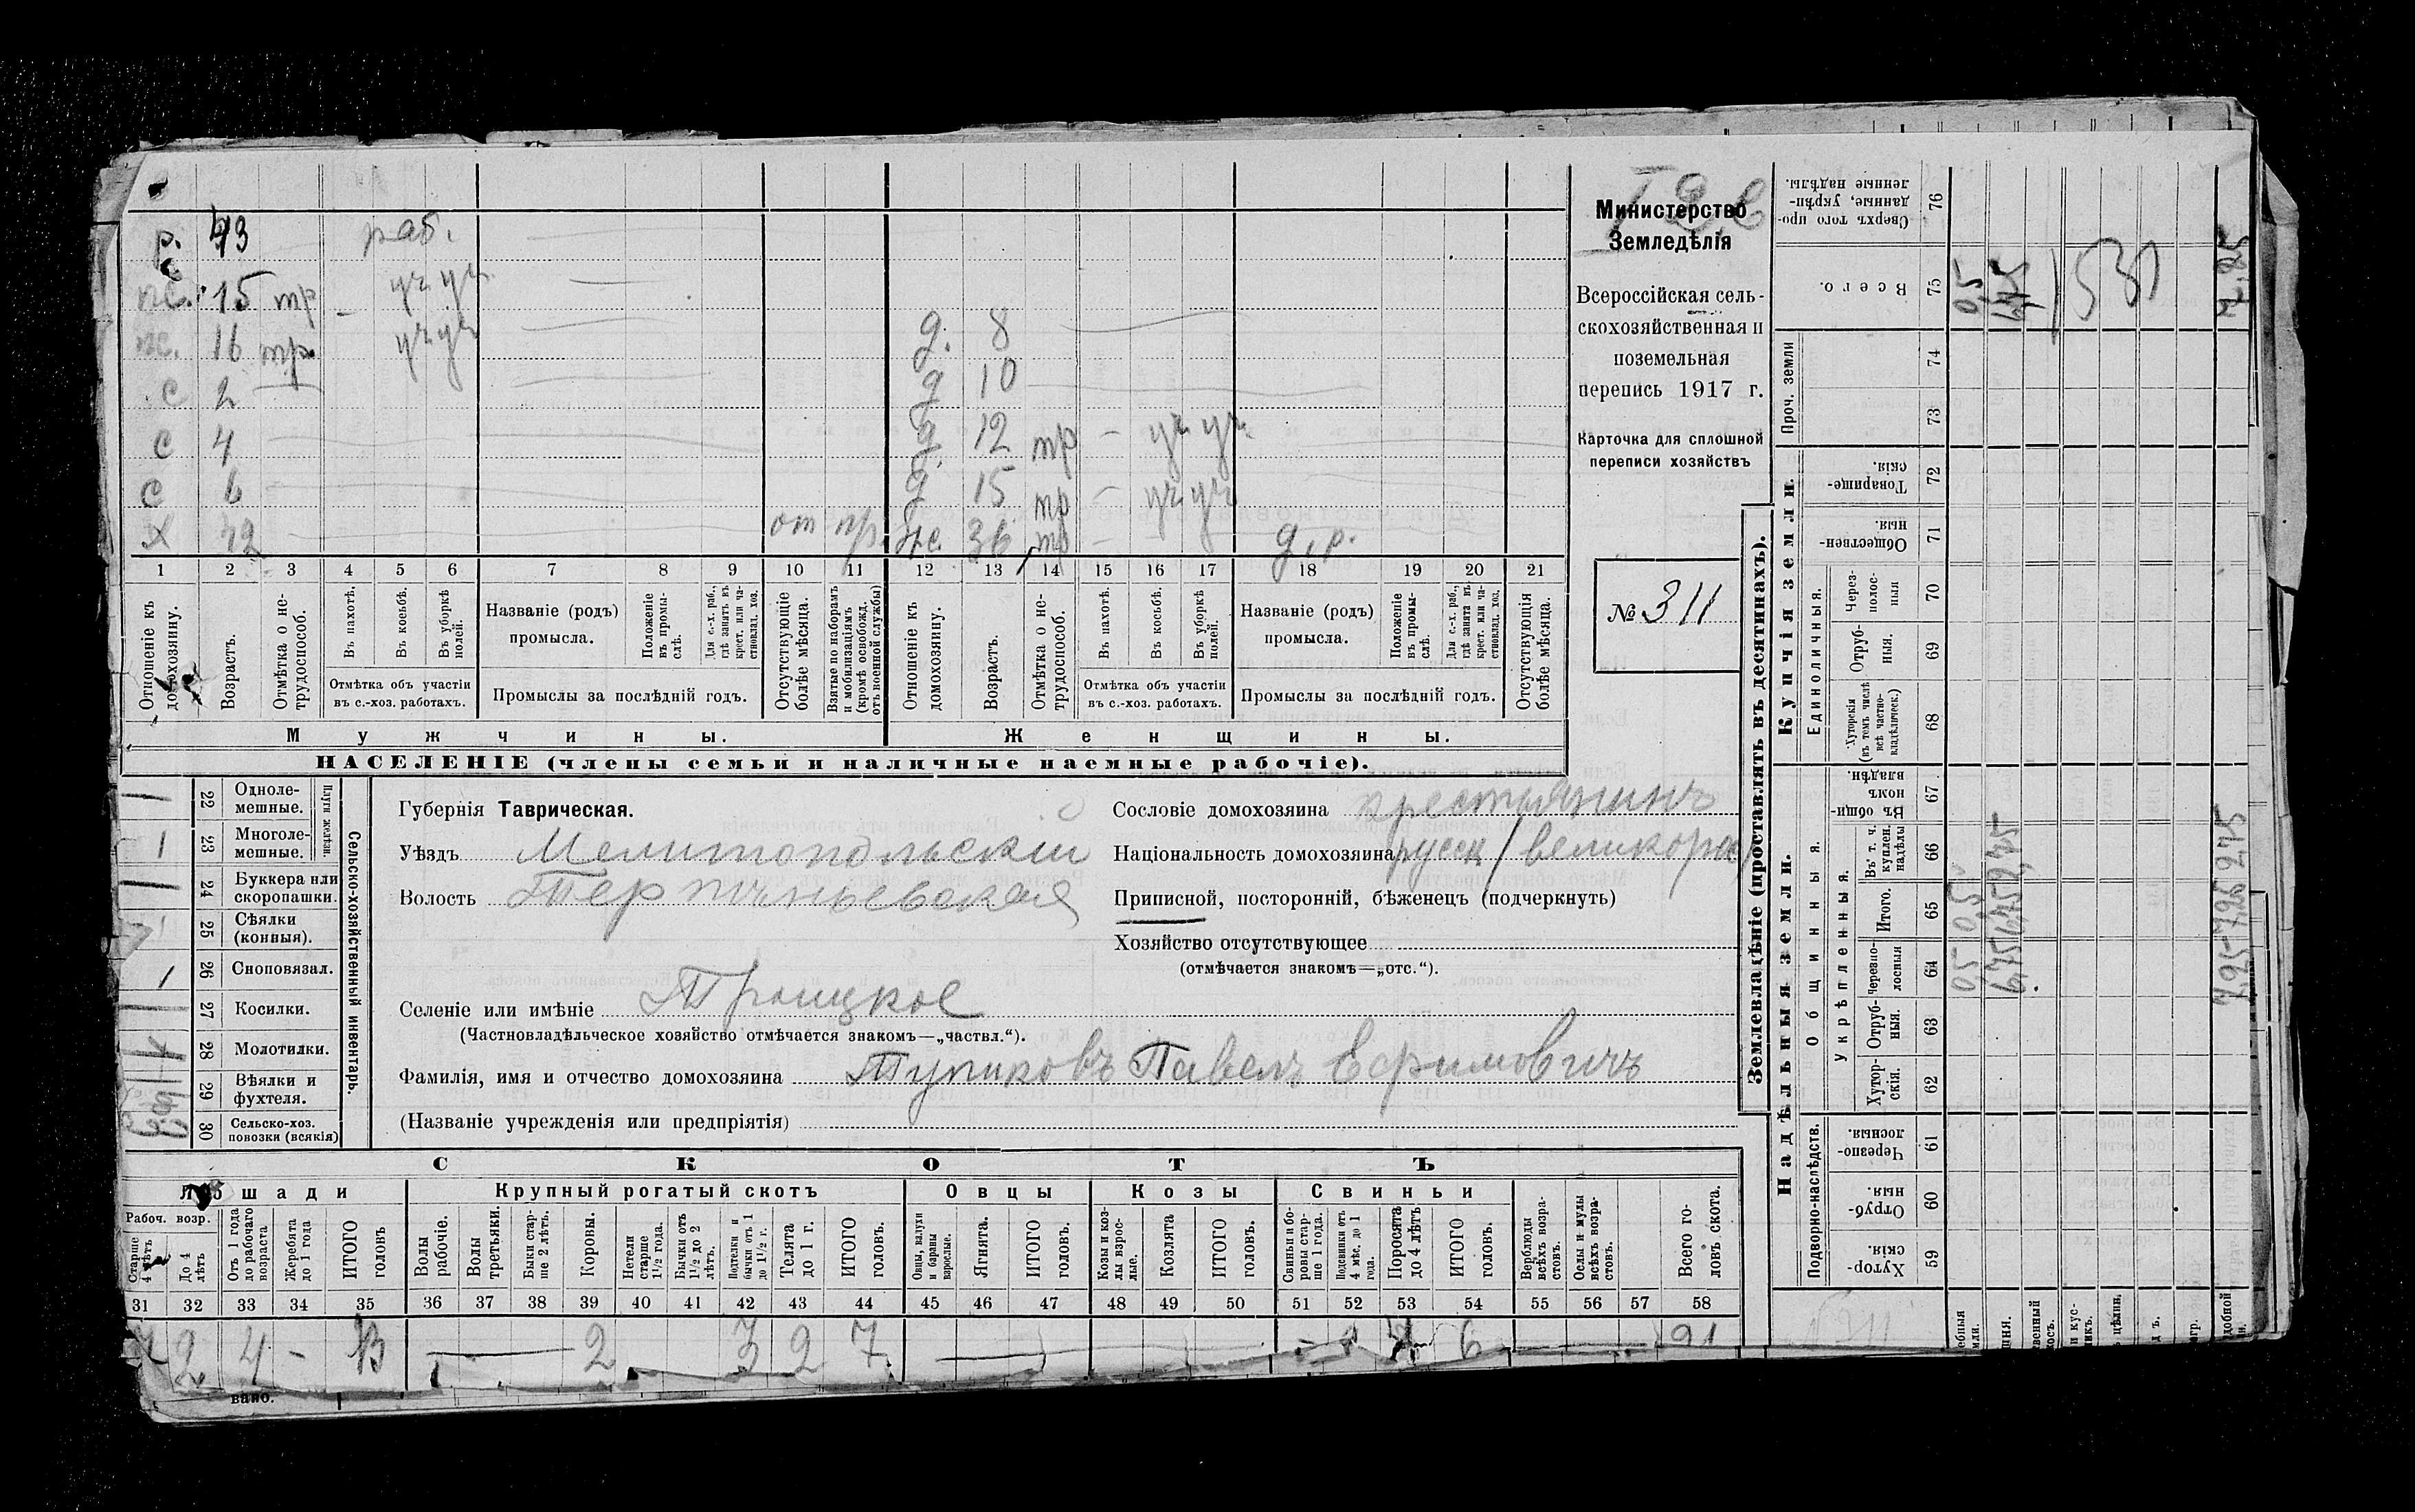 р. 43 раб.
с
пс. 15 тр - уч уч
пс. 16 тр. уч уч д. 8
с 2 д 10
с 4 д 12 тр - уч уч
с 6 д 15 тр - уч уч
х 42 от пр. же. 36 тр - д.р.
1 2 3 4 5 6 7 8 9 10 11 12 13 14 15 16 17 18 19 20 21
Отношеніе къ домохозяину.
Возрастъ.
Отмѣтка о нетрудоспособ.
Въ пахотѣ.
Въ косьбѣ.
Въ уборкѣ полей.
Отмѣтка объ участіи въ с.-хоз. работахъ.
Названіе (родъ) промысла.
Положеніе въ промыслѣ.
Для с.-х. раб., гдѣ занятъ въ крест. или частновлад. хоз.
Промыслы за послѣдній годъ.
Отсутствующіе болѣе мѣсяца.
Взятые по наборамъ и мобилизаціямъ (кромѣ освобожд. отъ военной службы)
Отношеніе къ домохозяину.
Возрастъ.
Отмѣтка о нетрудоспособ.
Въ пахотѣ.
Въ косьбѣ.
Въ уборкѣ полей.
Отмѣтка объ участіи въ с.-хоз. работахъ.
Названіе (родъ) промысла.
Положеніе въ промыслѣ.
Для с.-х. раб., гдѣ занята въ крест. или частновлад. хоз.
Промыслы за послѣдній годъ.
Отсутствующія болѣе мѣсяца.
Мужчины. Женщины.
НАСЕЛЕНІЕ (члены семьи и наличные наемные рабочіе).
Министерство
Земледѣлія
Всероссійская сель-
скохозяйственная и
поземельная
перепись 1917 г.
Карточка для сплошной
переписи хозяйствъ
№ 311
Сельско-хозяйственный инвентарь.
Плуги желѣзн.
22 Однолемешные.
1 23 Многолемешные.
24 Буккера или скоропашки.
1 25 Сѣялки (конныя).
1 26 Сноповязал.
27 Косилки.
28 Молотилки.
29 Вѣялки и фухтеля.
30 Сельско-хоз. повозки (всякія)
Губернія Таврическая.
Уѣздъ Мелитопольскій
Волость Терпѣньевская
Селеніе или имѣніе Троицкое
(Частновладѣльческое хозяйство отмѣчается знакомъ—„частвл.“).
Фамилія, имя и отчество домохозяина Тупиковъ Павелъ Ефимовичъ
(Названіе учрежденія или предпріятія)
Сословіе домохозяина крестьянинъ
Національность домохозяина русск / великорос
Приписной, посторонній, бѣженецъ (подчеркнуть)
Хозяйство отсутствующее
(отмѣчается знакомъ=„отс.“).
СКОТЪ
Лошади Крупный рогатый скотъ Овцы Козы Свиньи
Рабоч. возр.
Старше 4 лѣтъ
До 4 лѣтъ
Отъ 1 года до рабочаго возраста
Жеребята до 1 года
ИТОГО головъ
Волы рабочіе.
Волы третьяки.
Быки старше 2 лѣтъ.
Коровы.
Нетели старше 1½ года.
Бычки отъ 1½ до 2 лѣтъ.
Подтелки и бычки отъ 1 до 1½ г.
Телята до 1 г.
ИТОГО головъ.
Овцы, валухи и бараны взрослые.
Ягнята.
ИТОГО головъ.
Козы и козлы взрослые.
Козлята
ИТОГО головъ.
Свиньи и боровы старше 1 года.
Подсвинки отъ 4 мѣс. до 1 года.
Поросята до 4 лѣтъ
ИТОГО головъ.
Верблюды всѣхъ возрастовъ.
Ослы и мулы всѣхъ возрастовъ.
Всего головъ скота.
31 32 33 34 35 36 37 38 39 40 41 42 43 44 45 46 47 48 49 50 51 52 53 54 55 56 57 58
2 4 - 13 2 3 2 7 6 21
вано.
Землевладѣніе (проставлять въ десятинахъ).
Надѣльныя земли. Купчія земли.
Подворно-наслѣдств.
Общинныя.
Укрѣпленныя.
Единоличныя.
Проч. земли
59 Хуторскія
60 Отрубныя.
61 Черезполосныя.
62 Хуторскія.
63 Отрубныя.
64 Черезполосныя
65 Итого.
66 Въ т. ч. куплен. надѣлы
67 Въ общинномъ владѣн.
68 Хуторскія (въ томъ числѣ всѣ частновладѣльческ.)
69 Отрубныя.
70 Черезполосныя
71 Общественныя.
72 Товарищескія.
73
74
75 Всего.
76 Сверхъ того проданные, укрѣпленные надѣлы.
0,5 0,5 0,5
6,75 6,75 2,45
7,25 7,25 2,45 7,25
1531